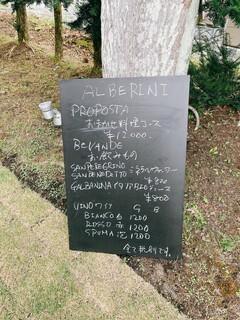 ALBERINI
PROPOSTA
おまかせ料理コース
¥12,000.
BEVANDE
お飲みもの
SANPELEGRINO
SANBENEDETTO ミネラルウォーター
¥800
GALBANINA イタリア
¥800
VINO ワイン G B
BIANCO 白 1200
ROSSO 赤 1200
SPUMA 泡 1200
全て税別です。